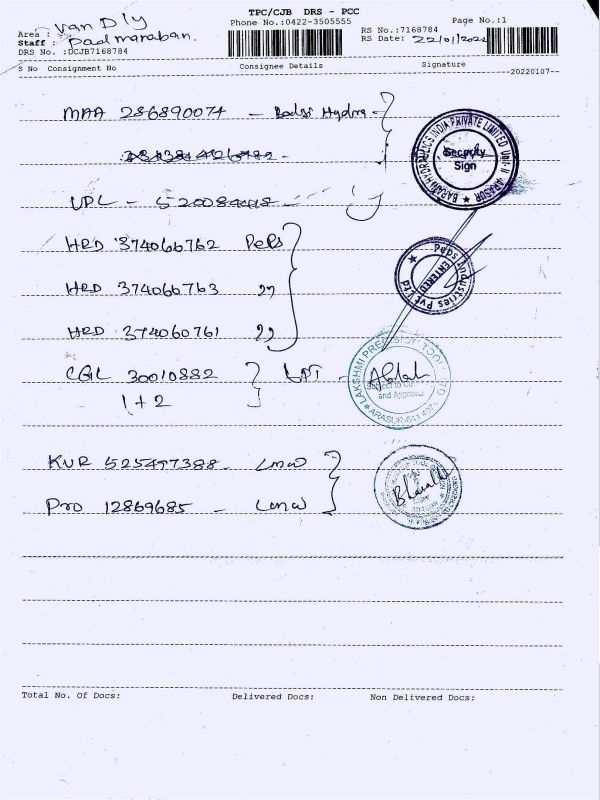 TPC/CJB DRS - PCC
Phone No.:0422-3505555
Page No.:1
Area : van Dly
Staff : Padmanaban.
DRS No. :DCJB7168784
RS No.:7168784
RS Date: 22/01/2022
S No Consignment No Consignee Details Signature
--20220107--
MAA 286890074 - Hydra
UPL -
HRD 374060762 Peps
HRD 374060763 "
HRD 374060761 "
CGL 30010882 LPT
1+2
KUR 525497388 - LMW
Pno 12869685 - LMW
BARANI HYDRAULICS INDIA PRIVATE LIMITED Unit-IV ARASUR
Security
Sign
Peps Industries Pvt Ltd
ENTERED
LAKSHMI PRECISION TOOLS LTD
Subject to
and Approval
ARASUR-641 407
Bharath
Total No. Of Docs: Delivered Docs: Non Delivered Docs: